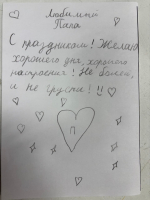 Любимый
Папа
С праздником! Желаю
хорошего дня, хорошего
настроения! Не болей,
и не грусти!!
П